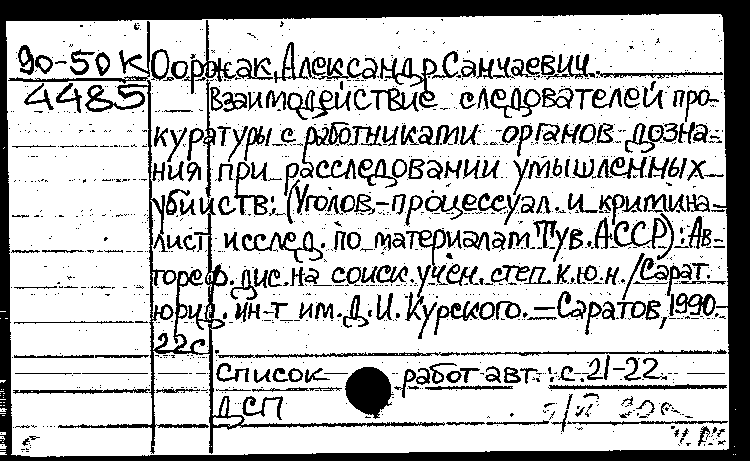 90-50К Ооржак, Александр Санчаевич.
4485 Взаимодействие следователей про-
куратуры с работниками органов дозна-
ния при расследовании умышленных
убийств: (Уголов.-процессуал. и кримина-
лист исслед. по материалам Тув. АССР): Ав-
тореф. дис. на соиск. учен. степ. к.ю.н. / Сарат.
юрид. ин-т им. Д.И. Курского. — Саратов, 1990.-
22с.
Список работ авт.: с. 21-22.
ДСП